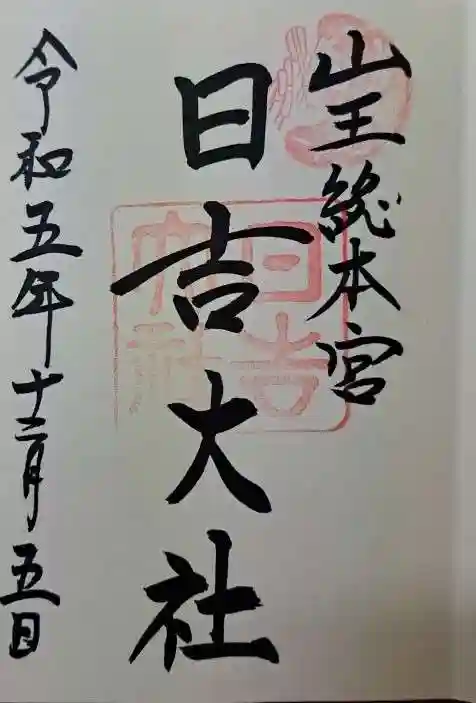 山王総本宮
日吉大社
日吉
大社
令和五年十二月五日